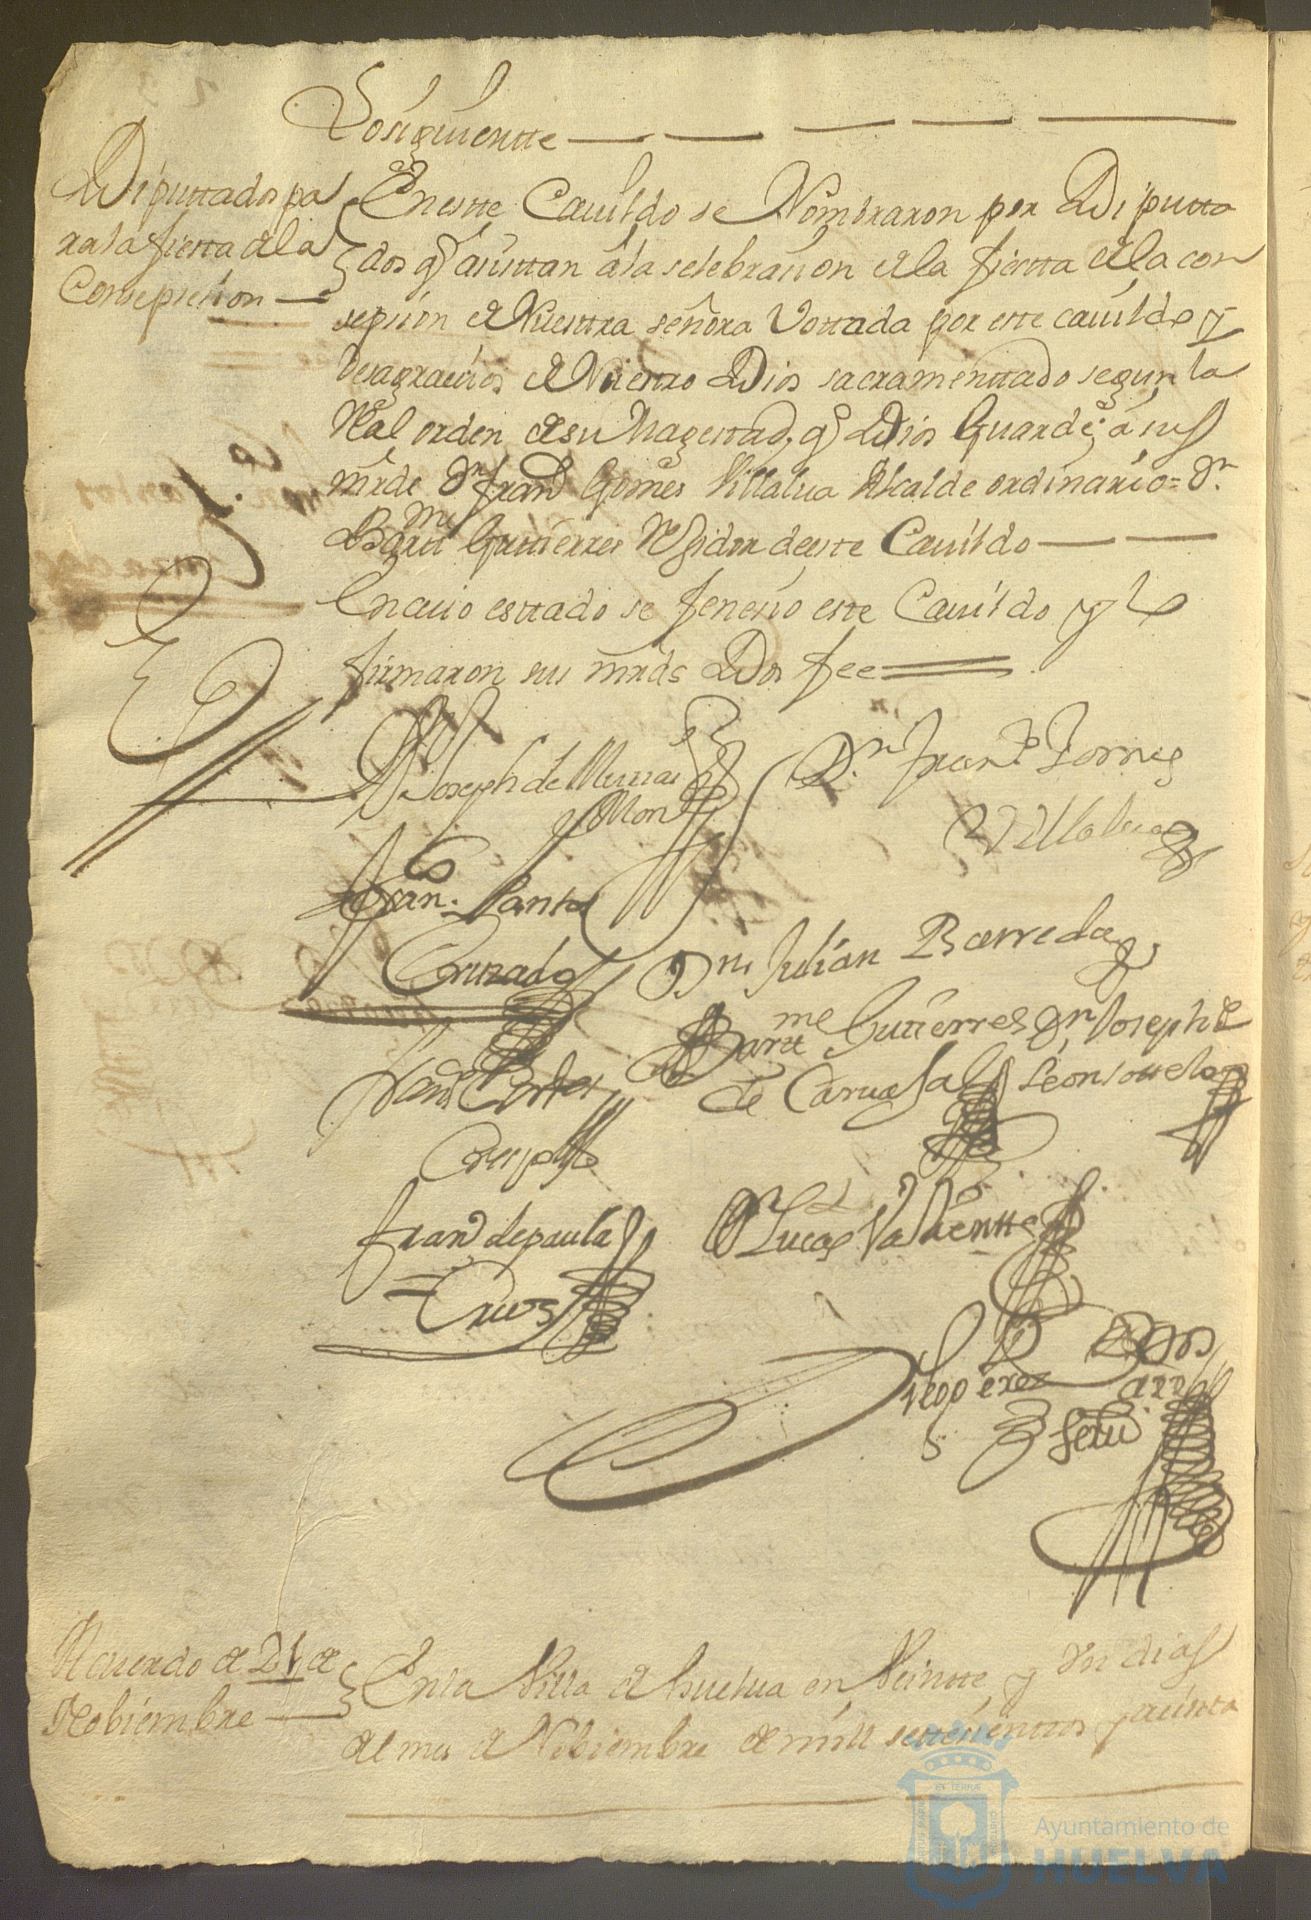 Lo siguientte
Diputtados pa
ra la fiestta de la
Consepscion
En estte Cavildo se Nombraron por Diputta
dos q asisttan a la selebracion de la fiestta de la con
sepsion de Nuesttra señora Vottada por este cavildo y
desagravios de Nuestro Dios sacramenttado segun la
Real orden de su Magestad, q Dios Guarde, a sus
mrde Dn Franco Gomes Villalva Alcalde ordinario = Dn
Bartme Gutierres Regidor de este Cavildo
En cuio esttado se fenesio este Cavildo y lo
firmaron sus mrds Doi fee
Joseph de
Dn Franco Torres
Villalva
Franco Santos
Cruzado
Dn Julian Barreda
Bartme Gutierres Dn Joseph
de Carvajal Leon Sottelo
Franco Cortes
Crespo
Franco de paula
Cruz
Dn Lucas Valientte
Diego perez
Acuerdo de 21 de
Nobiembre
En la Villa de huelva en Veintte y un dias
del mes de Nobiembre de mill settesienttos
ET TERRAE
Ayuntamiento de
HUELVA